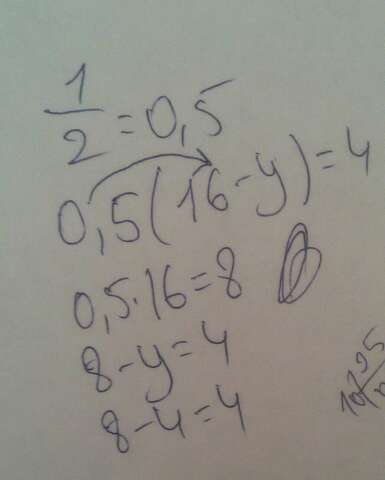 1/2 = 0,5
0,5(16-y)=4
0,5·16=8
8-y=4
8-4=4